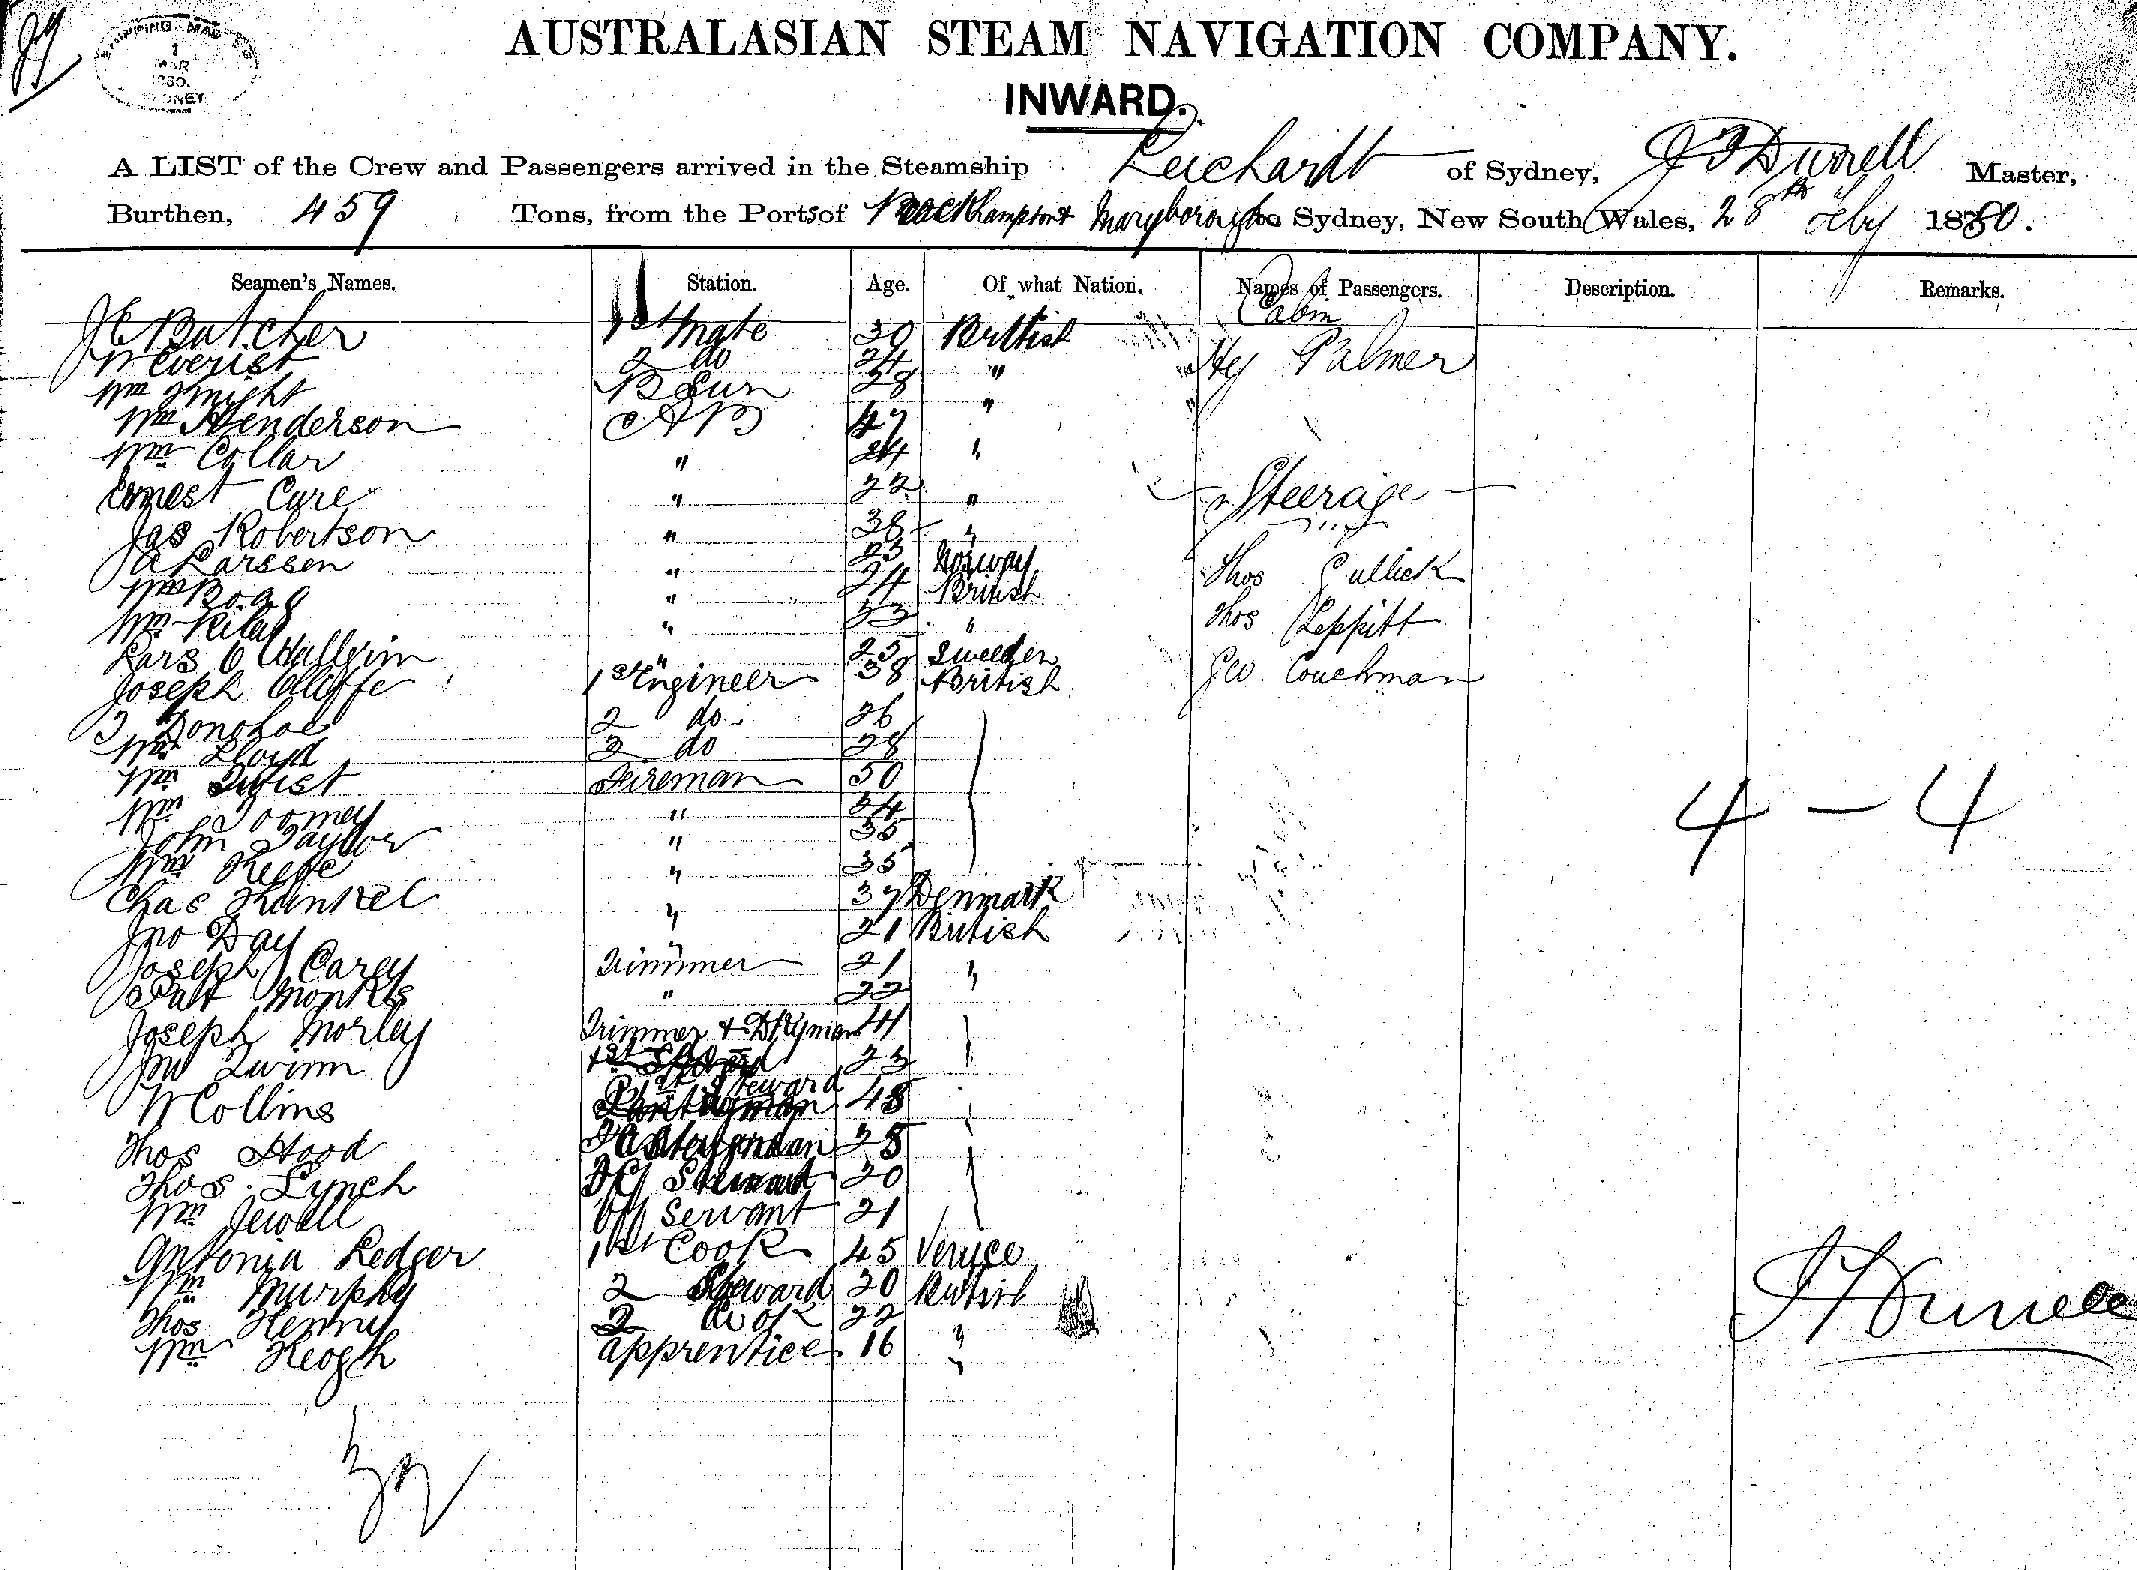 89
SHIPPING MASTERS
1
MAR
1880.
SYDNEY
AUSTRALASIAN STEAM NAVIGATION COMPANY.
INWARD.
A LIST of the Crew and Passengers arrived in the Steamship Leichardt of Sydney, Master,
Burthen, 459 Tons, from the Ports of Rockhampton & Maryborough to Sydney, New South Wales, 28th Feby 1880.
Seamen's Names. Station. Age. Of what Nation. Names of Passengers. Description. Remarks.
Cabin
J C Butcher 1st Mate 30 British
W Everist 2 do 24 " Hy Palmer
Wm Knight B Sun 28 "
Wm Henderson AB 47
Wm Collar " 24 "
Ernest Cure " 22 " Steerage
Jas Robertson " 38 "
A Larssen " 23 Norway Thos Gullick
Wm " 24 British
Wm Riley " 33 " Thos Leppitt
Lars O " 25 Sweden
Joseph Olliffe 1st Engineer 38 British Geo Couchman
J Donohoe 2 do 26
Wm Lloyd 3 do 28
Wm Twist Fireman 50
Wm Toomey " 34
John Taylor " 35
Wm Keefe " 35
Chas Kunkel " 37 Denmark
Jno Day " 21 British
Joseph Carey Trimmer 21 "
Pat Monks " 22
Joseph Morley Trimmer & Dkyman 41
Jno Quinn 23
W Collins Steward 48
Thos Hood 28
Thos Lynch 20
Wm Jewell Servant 21
Antonia Ledger 1st Cook 45 Venice
Wm Murphy 2 Steward 20 British
Thos Henry 2 Cook 22 "
Wm Keogh apprentice 16 "
4 – 4